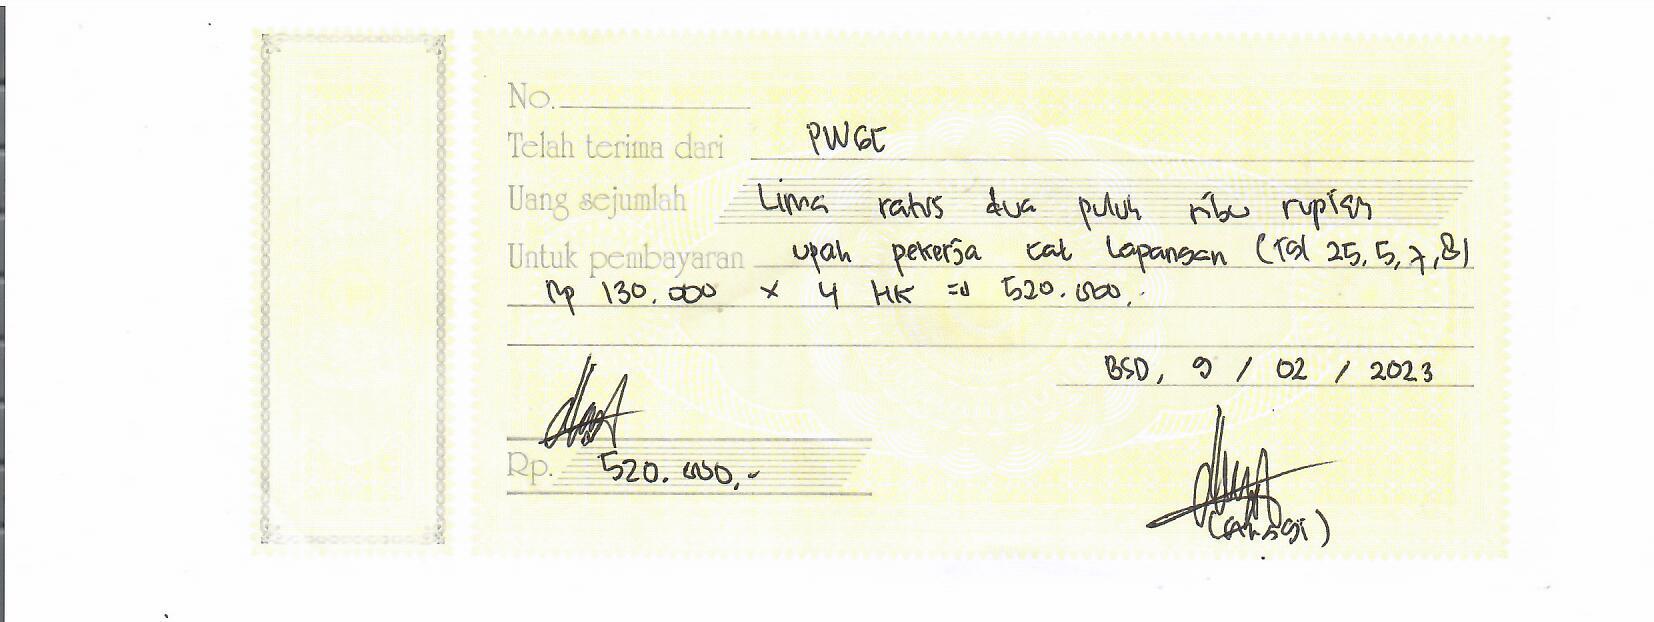 No.
Telah terima dari PWGE
Uang sejumlah Lima ratus dua puluh ribu rupiah
Untuk pembayaran upah pekerja cat lapangan (Tgl 25, 5, 7, 8)
Rp 130.000 x 4 HK = 520.000,-
BSD, 9 / 02 / 2023
Rp. 520.000,-